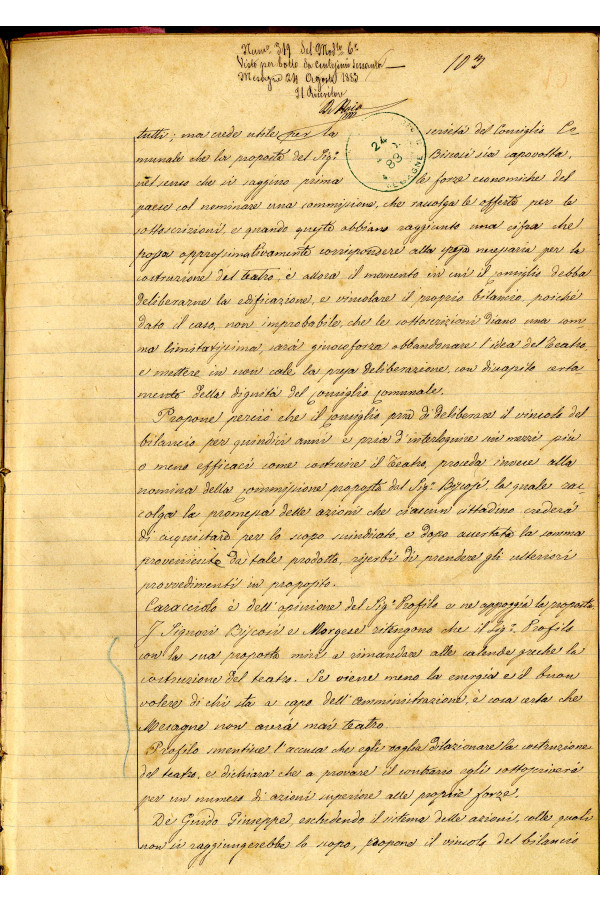 Num.º 319 del Mod.lo 6.º
Visto per bollo da centesimi sessanta
Mesagne 24 Agosto 1883
Il Ricevitore
103
24
83
MESAGNE
tutti; ma crede utile per la serietà del Consiglio Co-
munale che la proposta del Sig.r Biscosi sia capovolta,
nel senso che si saggino prima le forze economiche del
paese col nominare una commissione, che raccolga le offerte per le
sottoscrizioni, e quando queste abbiano raggiunto una cifra che
possa approssimativamente corrispondere alla spesa necessaria per la
costruzione del teatro, è allora il momento in cui il consiglio debba
deliberarne la edificazione, e vincolare il proprio bilancio, poichè
dato il caso, non improbabile, che le sottoscrizioni diano una som-
ma limitatissima, sarà giuocoforza abbandonare l'idea del Teatro
e mettere in non cale la presa deliberazione, con discapito certa-
mente della dignità del Consiglio comunale.
Propone perciò che il Consiglio pria di deliberare il vincolo del
bilancio per quindici anni e pria d'interloquire sui mezzi più
o meno efficaci come costruire il Teatro, proceda invece alla
nomina della Commissione proposta dal Sig.r Biscosi la quale rac-
colga la promessa delle azioni che ciascun cittadino crederà
di acquistare per lo scopo suindicato, e dopo accertata la somma
proveniente da tale prodotto, riserbi di prendere gli ulteriori
provvedimenti in proposito.
Caracciolo è dell'opinione del Sig.r Profilo e ne appoggia la proposta.
I Signori Biscosi e Morgese ritengono che il Sig.r Profilo
con la sua proposta miri a rimandare alle calende greche la
costruzione del teatro. Se viene meno la energia e il buon
volere di chi sta a capo dell'amministrazione, è cosa certa che
Mesagne non avrà mai teatro
Profilo smentisce l'accusa che egli voglia dilazionare la costruzione
del teatro, e dichiara che a provare il contrario egli sottoscriverà
per un numero di azioni superiore alle proprie forze.
De Guido Giuseppe, escludendo il sistema delle azioni, colle quali
non si raggiungerebbe lo scopo, propone il vincolo del bilancio